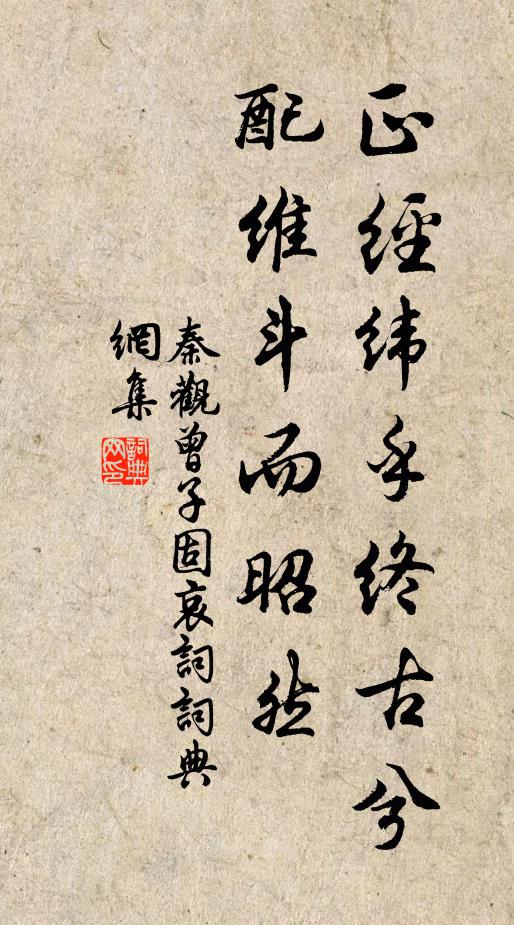 正經緯乎終古兮
配維斗而昭然
秦觀曾子固哀詞詞典
網集
詞典
网印